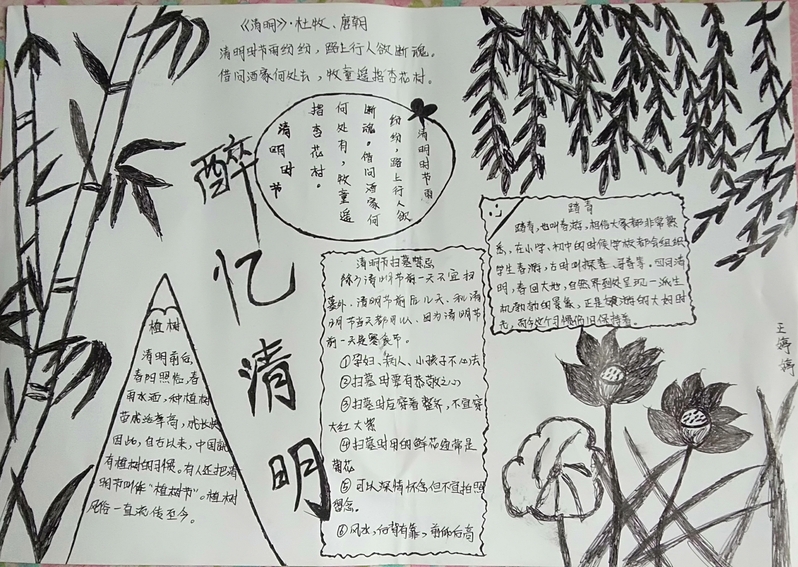 《清明》·杜牧、唐朝
清明时节雨纷纷，路上行人欲断魂。
借问酒家何处去，牧童遥指杏花村。
清明时节雨
纷纷，路上行人欲
断魂。借问酒家何
何处有，牧童遥
指杏花村。
清明时节
醉忆清明
植树
清明前后，
春阳照临，春
雨水洒，种植树
苗成活率高，成长快
因此，自古以来，中国就
有植树的习惯。有人还把清
明节叫作“植树节”。植树
风俗一直流传至今。
清明节扫墓禁忌
除了清明节前一天不宜扫
墓外，清明节前后几天，和清
明节当天都可以，因为清明节
前一天是寒食节。
①孕妇、病人、小孩子不心去
②扫墓时要有恭敬之心
③扫墓时应穿着整齐，不宜穿
大红大紫
④扫墓时用的鲜花通常是
菊花
⑤可以深情怀念但不宜拍照
留念。
⑥风水，后背有靠，前俯后高
踏青
踏青，也叫春游，相信大家都非常熟
悉，在小学、初中的时候学校都会组织
学生春游，古时叫探春、寻春等。四月清
明，春回大地，自然界到处呈现一派生
机勃勃的景象，正是郊游的大好时
光，这个习惯仍旧保持着。
王婷婷